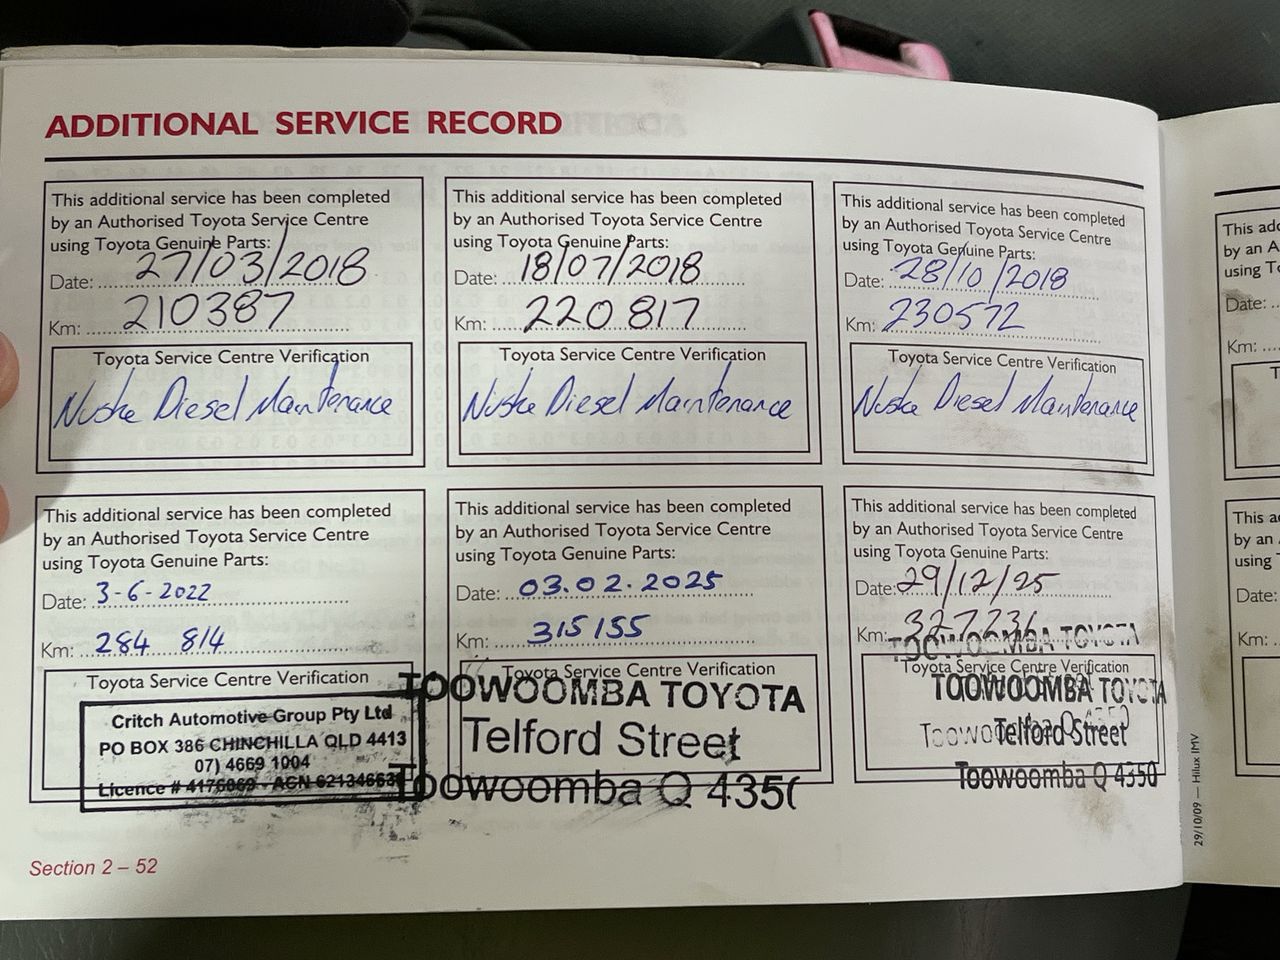 ADDITIONAL SERVICE RECORD
This additional service has been completed
by an Authorised Toyota Service Centre
using Toyota Genuine Parts:
Date: 27/03/2018
Km: 210387
Toyota Service Centre Verification
Nuske Diesel Maintenance
This additional service has been completed
by an Authorised Toyota Service Centre
using Toyota Genuine Parts:
Date: 18/07/2018
Km: 220817
Toyota Service Centre Verification
Nuske Diesel Maintenance
This additional service has been completed
by an Authorised Toyota Service Centre
using Toyota Genuine Parts:
Date: 28/10/2018
Km: 230572
Toyota Service Centre Verification
Nuske Diesel Maintenance
This additional service has been completed
by an Authorised Toyota Service Centre
using Toyota Genuine Parts:
Date: 3-6-2022
Km: 284 814
Toyota Service Centre Verification
Critch Automotive Group Pty Ltd
PO BOX 386 CHINCHILLA QLD 4413
07) 4669 1004
Licence #
This additional service has been completed
by an Authorised Toyota Service Centre
using Toyota Genuine Parts:
Date: 03.02.2025
Km: 315155
Toyota Service Centre Verification
TOOWOOMBA TOYOTA
Telford Street
Toowoomba Q 4350
This additional service has been completed
by an Authorised Toyota Service Centre
using Toyota Genuine Parts:
Date: 29/12/25
Km: 327236
TOOWOOMBA TOYOTA
Toyota Service Centre Verification
TOOWOOMBA TOYOTA
Telford Street
Toowoomba Q 4350
29/10/09 — Hilux IMV
Section 2 – 52
This
by an
using
Date:
Km:
This
by an
using
Date:
Km: